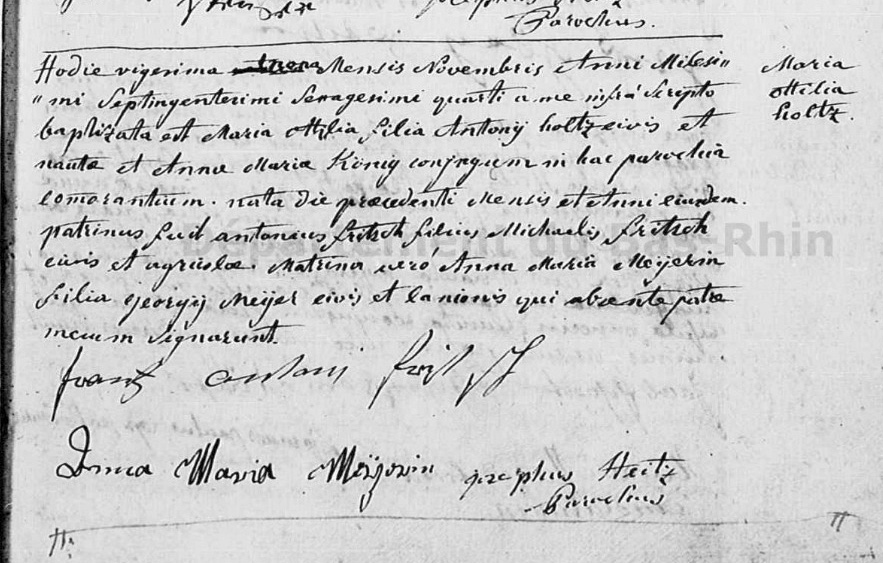 Parochus.
Hodie vigesima Mensis Novembris Anni Milesi"
"mi Septingentesimi Sexagesimi quarti a me infrá Scripto
baptizata est Maria Ottilia filia Antonij holtz civis et
nautæ et Annæ Mariæ König conjugum in hac parochiâ
comorantium. nata die præcedenti Mensis et Anni eiusdem.
patrinus fuit antonius fritsch filius Michaelis fritsch
civis et agricolæ. Matrina veró Anna Maria Meÿerin
filia georgij Meijer civis et lanionis qui absente patre
mecum Signarunt.
Maria
Ottilia
holtz.
frantz antoni fritsch
Anna Maria Meÿerin
josephus Heitz
Parochus
Département du Bas-Rhin